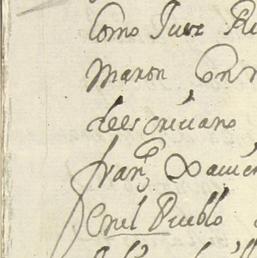 Como Juez Re
maron Con
deescrivano
Franco Xavier
enel Pueblo